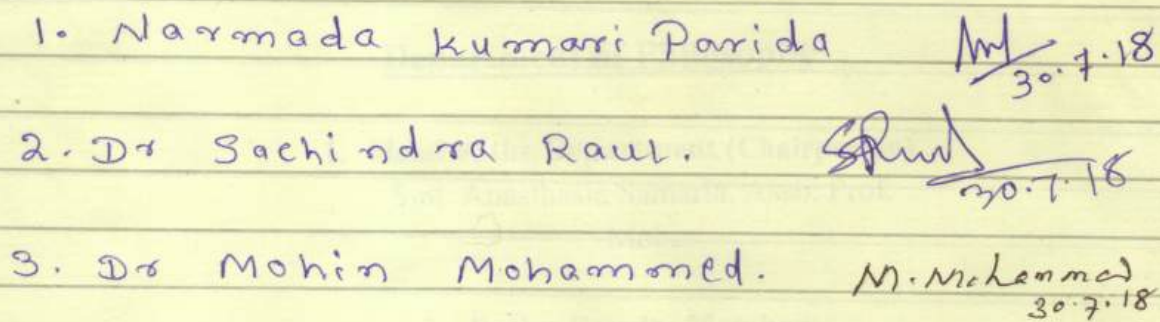 1. Narmada Kumari Parida 30.7.18
2. Dr Sachindra Raul. SRaul 30.7.18
3. Dr Mohin Mohammed. M. Mohammed 30.7.18